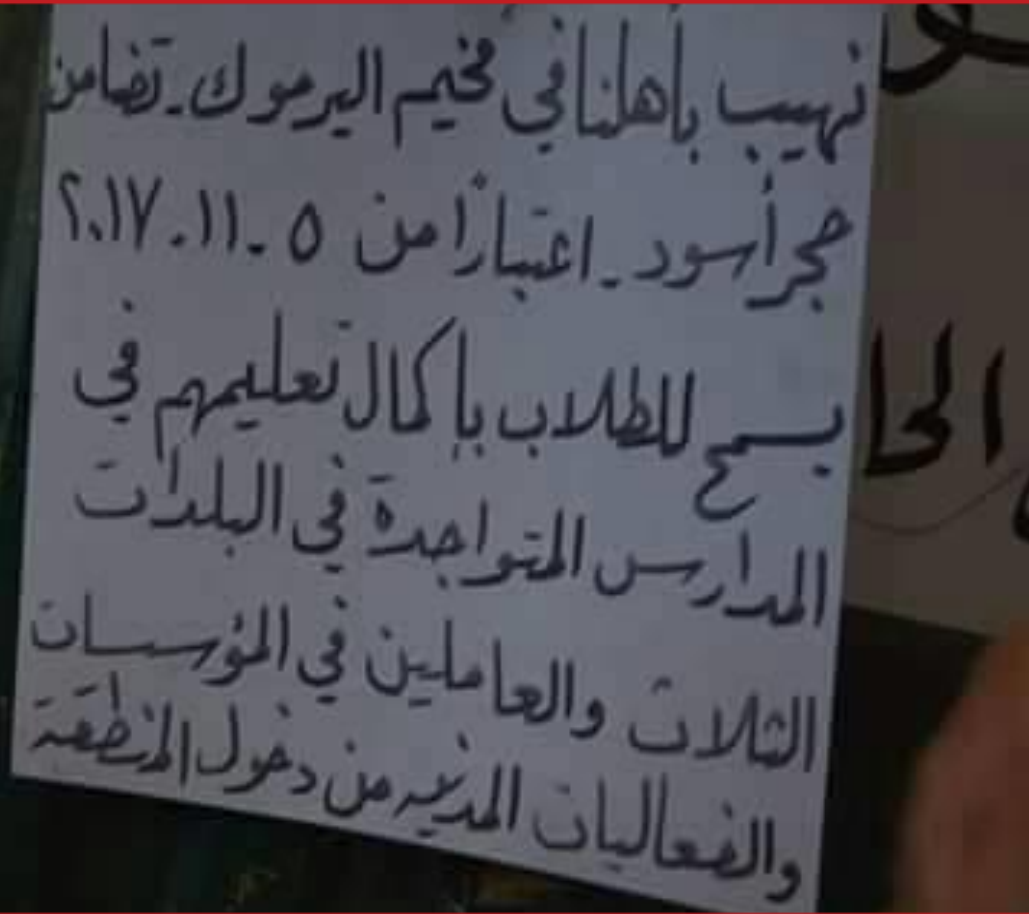 نهيب بأهلنا في مخيم اليرموك ـ تضامن
حجر أسود ـ اعتبارًا من ٥ ـ ١١ ـ ٢٠١٧
يسمح للطلاب بإكمال تعليمهم في
المدارس المتواجدة في البلدات
الثلاث والعاملين في المؤسسات
والفعاليات المدنيه من دخول المنطقة